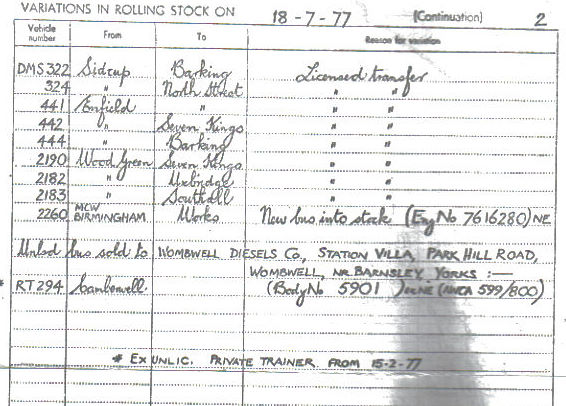 VARIATIONS IN ROLLING STOCK ON 18-7-77 (Continuation) 2
Vehicle number From To Reason for variation
DMS 322 Sidcup Barking Licensed transfer
324 " North Street " "
441 Enfield " " "
442 " Seven Kings " "
444 " Barking " "
2190 Wood Green Seven Kings " "
2182 " Uxbridge " "
2183 " Southall " "
2260 MCW BIRMINGHAM Works New bus into stock (Eng No 7616280) NE
Unlsd bus sold to WOMBWELL DIESELS Co, STATION VILLA, PARK HILL ROAD,
WOMBWELL, NR. BARNSLEY, YORKS :—
* RT 294 Camberwell (Body No 5901 ) NE (AMCA 599/800)
* EX UNLIC. PRIVATE TRAINER FROM 15-2-77